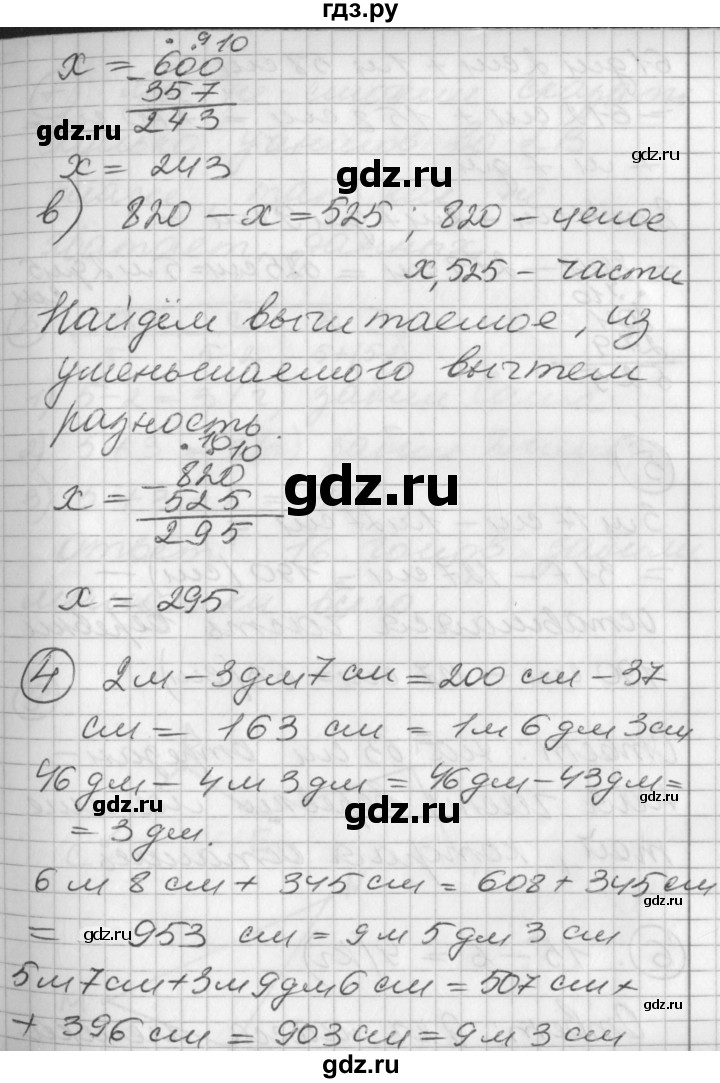 гдз.ру
• •9 10
x = - 600
357
243
gdz.ru
gdz.ru
x = 243
gdz.ru
в) 820 - x = 525 ; 820 - целое
x, 525 - части
gdz.ru
Найдём вычитаемое, из
уменьшаемого вычтем
разность.
• 10 10
x = - 820
525
295
gdz.ru
x = 295
④ 2 м - 3 дм 7 см = 200 см - 37
см = 163 см = 1 м 6 дм 3 см
46 дм - 4 м 3 дм = 46 дм - 43 дм =
gdz.ru
gdz.ru
gdz.ru
= 3 дм.
6 м 8 см + 345 см = 608 + 345 см
gdz.ru
= 953 см = 9 м 5 дм 3 см
gdz.ru
5 м 7 см + 3 м 9 дм 6 см = 507 см +
gdz.ru
+ 396 см = 903 см = 9 м 3 см
gdz.ru